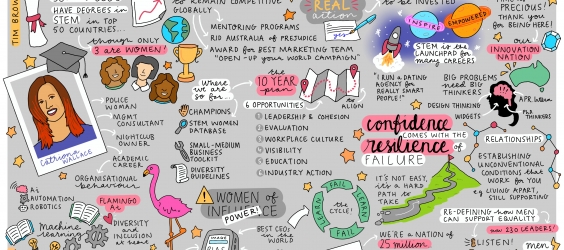 TIM BROW
HAVE DEGREES in
STEM in TOP
50 COUNTRIES...
though only
3 are WOMEN!
to REMAIN COMPETITIVE
GLOBALLY
MENTORING PROGRAMS
RID AUSTRALIA of PREJUDICE
AWARD for BEST MARKETING TEAM
"OPEN-UP your WORLD CAMPAIGN"
REAL
action
to BE INVESTED
INSPIRE
EMPOWERED
STEM is the
LAUNCHPAD for
MANY CAREERS.
PRECIOUS!
THANK YOU
for BEING HERE!
our
INNOVATION
NATION
Catriona
WALLACE
POLICE
WOMAN
MGMT
CONSULTANT
NIGHTCLUB
OWNER
ACADEMIC
CAREER
ORGANISATIONAL
behaviour
Where
we are
so far...
CHAMPIONS
STEM WOMEN
DATABASE
SMALL-MEDIUM
BUSINESS
TOOLKIT
DIVERSITY
GUIDELINES
the
10 YEAR
plan
yes
to
ALIGN
6 OPPORTUNITIES
LEADERSHIP & COHESION
EVALUATION
WORKPLACE CULTURE
VISIBILITY
EDUCATION
INDUSTRY ACTION
"I RUN a DATING
AGENCY for
REALLY SMART
PEOPLE!"
BIG PROBLEMS
NEED BIG
THINKERS
DESIGN THINKING
WIDGETS
THINKERS
confidence
COMES WITH THE
resilience
of
FAILURE
IT'S NOT EASY,
it's a HARD
PATH to
TAKE
RELATIONSHIPS
ESTABLISHING
UNCONVENTIONAL
CONDITIONS that
WORK for YOU
LIVING APART,
STILL SUPPORTING
Ai
AUTOMATION
ROBOTICS
Machine
learning
FLAMINGO
Ai
DIVERSITY
and
INCLUSION
at scale
WOMEN of
INFLUENCE
POWER!
BEST CEO's
in the
WORLD
FAIL
LEARN
FAIL
LEARN
the
CYCLE!
WE'RE A NATION of
25 million
RE-DEFINING how MEN
CAN SUPPORT EQUALITY
now 230 LEADERS!
LISTEN!
men